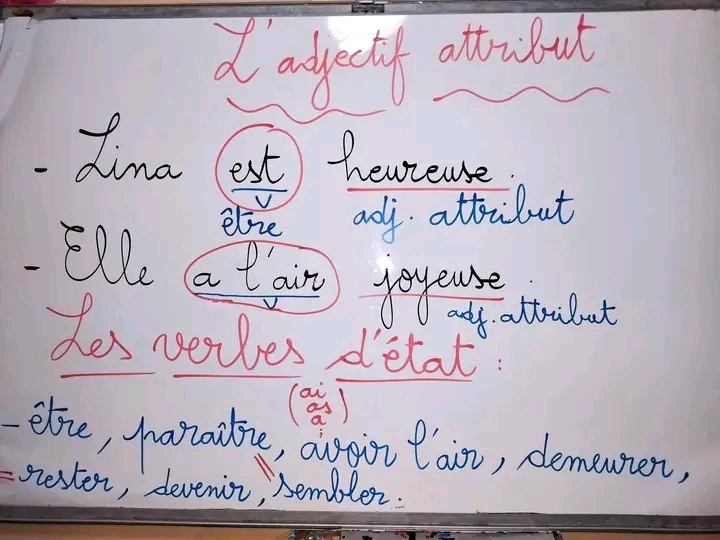 L'adjectif attribut
- Lina est heureuse.
v
être adj. attribut
- Elle a l'air joyeuse.
v adj. attribut
Les verbes d'état :
(ai
as
a)
- être, paraître, avoir l'air, demeurer,
= rester, devenir, sembler.